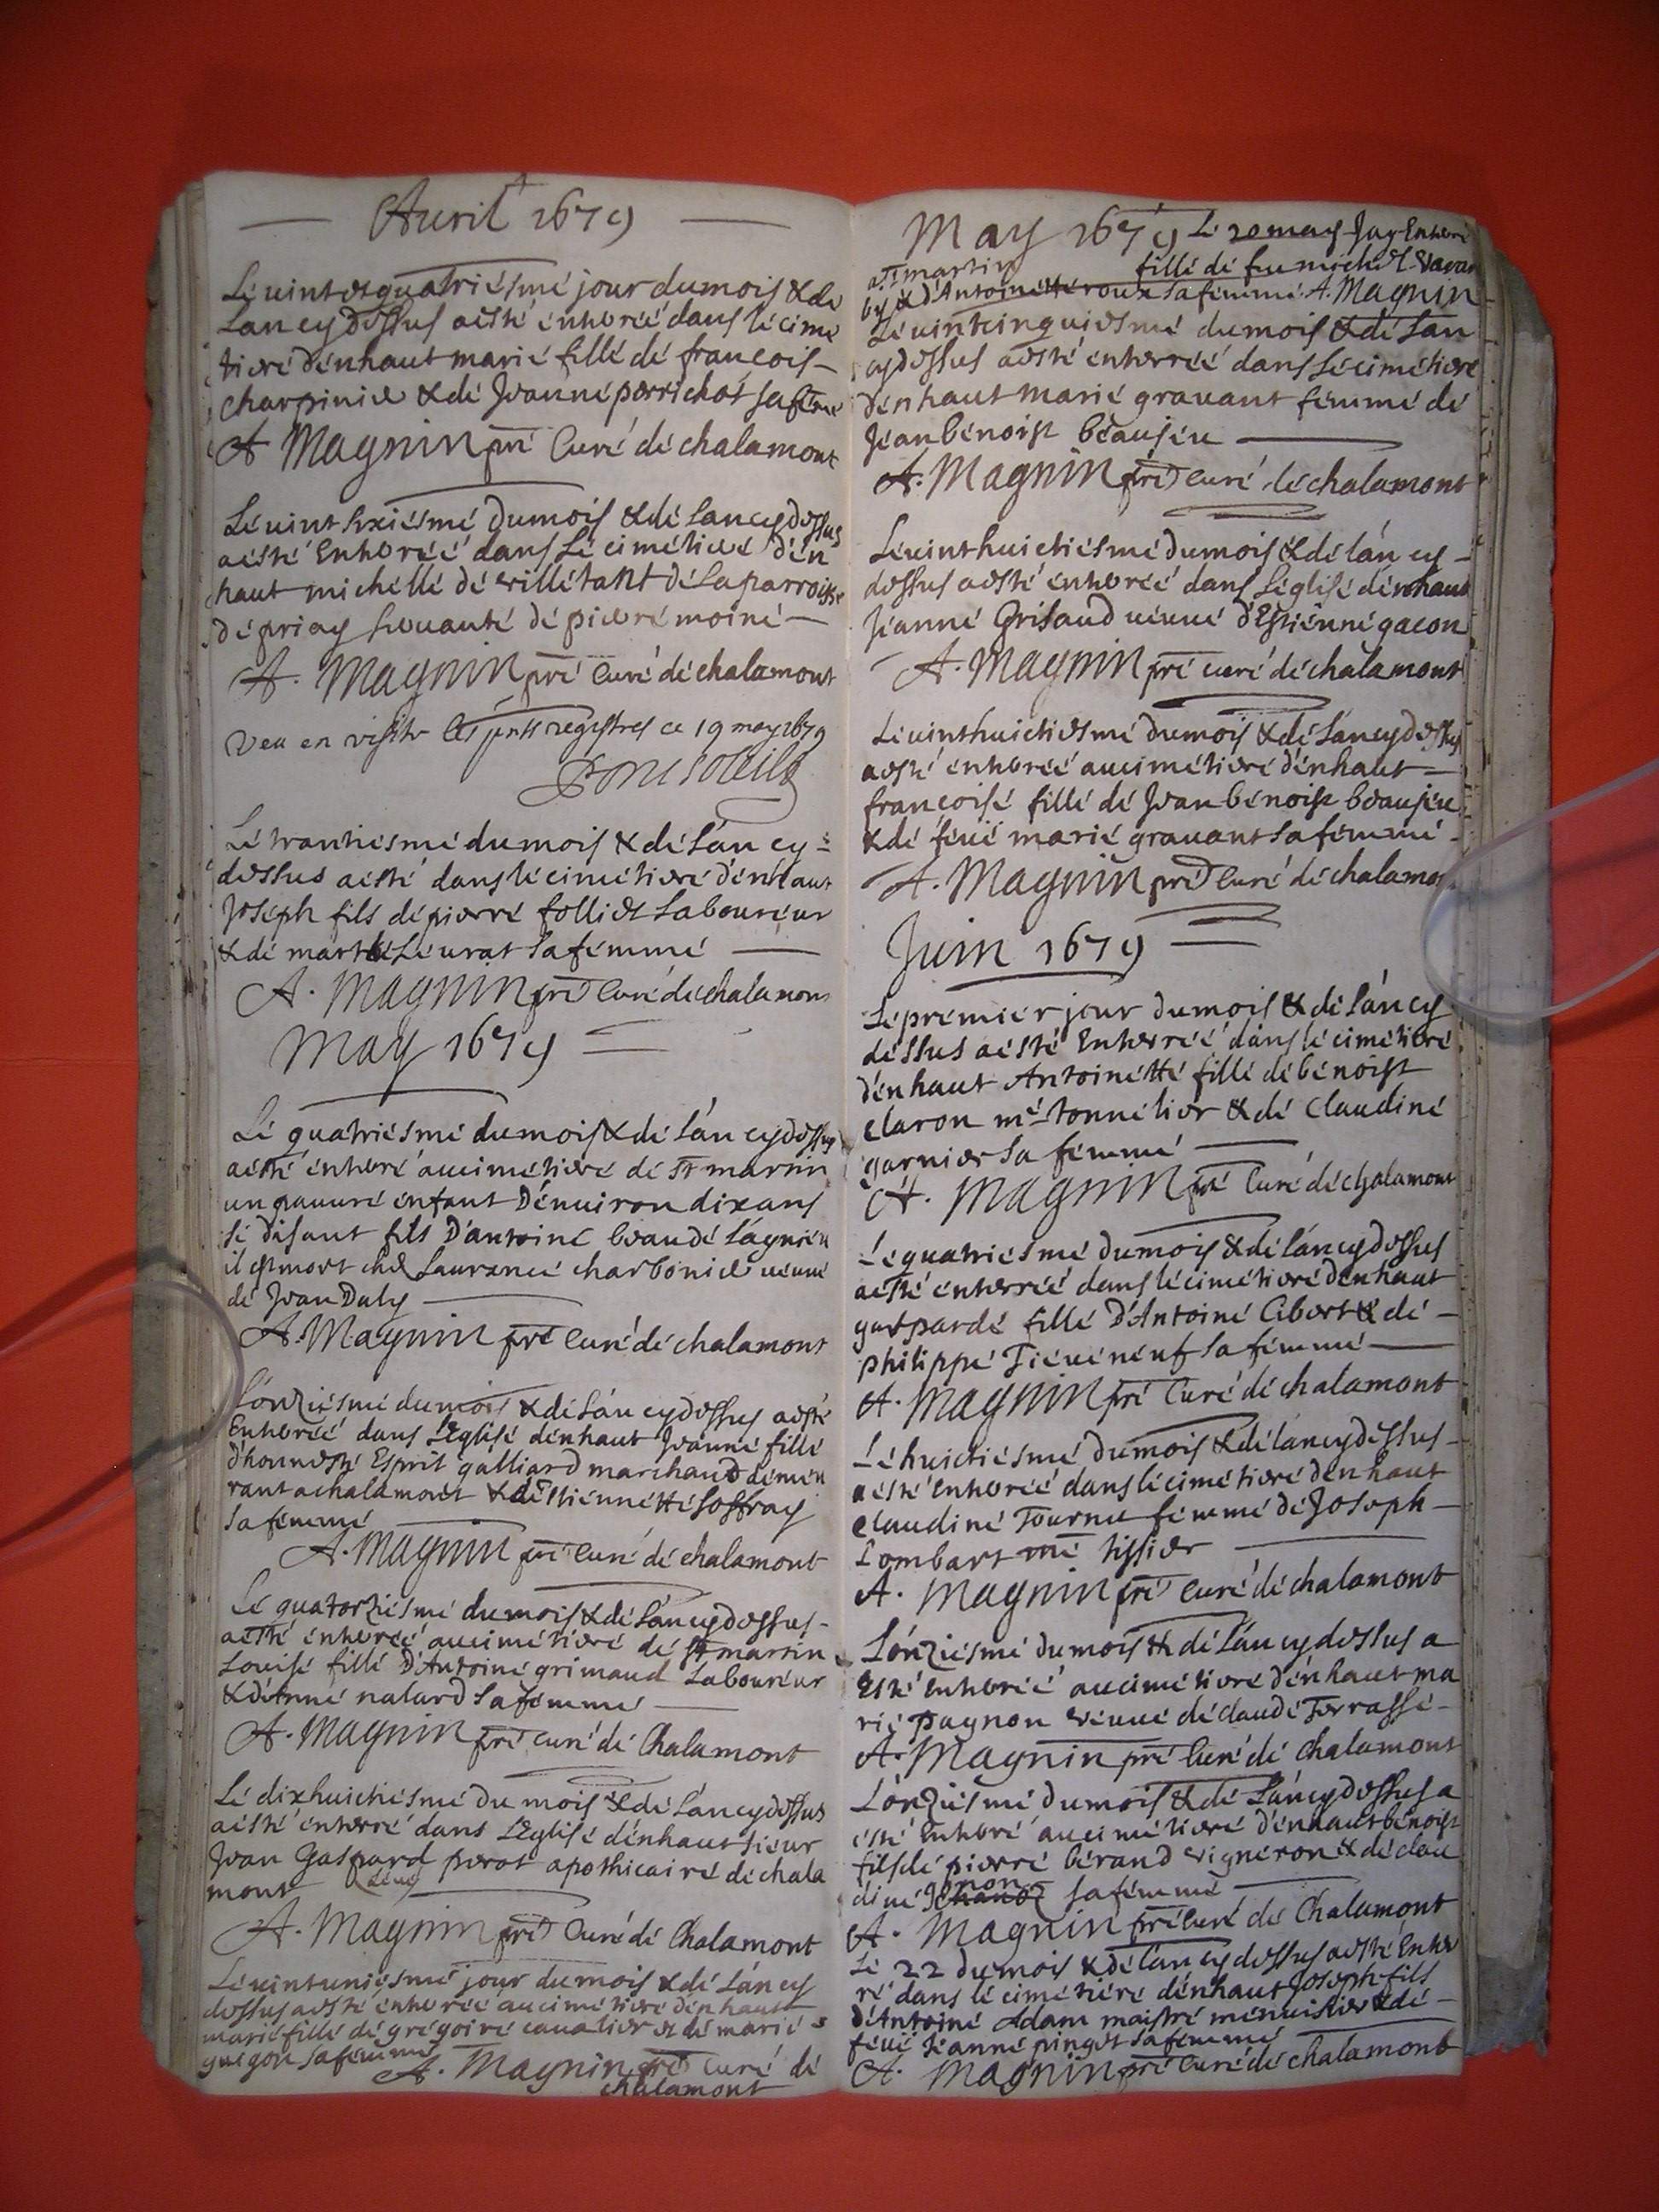 Auril 1679
Lé uint et quatriésmé jour du mois & de
Lan cy dessus a esté énterréé dans lé cime
tieré d'énhaut marié fillé dé françois
charpinel & dé Jeanné perrichot sa féme
A Magnin pré Curé dé chalamont
Lé uint sixiésmé du mois & dé Lan cy dessus
a esté Enterréé dans Lé cimetieré d'én
haut michéllé dé villétant dé La parroisse
dé priay seruanté dé pierré moiné
A. Magnin pré Curé dé chalamont
Veu en visite les pnts registres ce 19 may 1679
Lé trantiesmé du mois & dé L'án cy
dessus a ésté dans lé cimétieré d'énhaut
Joséph fils dé pierré folliet Labouréur
& dé marthé Léurat sa fémmé
A. Magnin pré Curé dé chalamont
May 1679
Lé quatriésmé du mois & dé L'án cy dessus
a ésté énterré au cimétieré dé St martin
un pauuré énfant D'énuiron dix ans
sé disant fils D'antoiné beau dé Lágniéu
il est mort chés Lauréncé charboniel ueuué
dé Jean Duby
A. Magnin pré Curé dé chalamont
L'ónziésmé du mois & dé L'án cy dessus a esté
Enterréé dans L'Eglisé d'énhaut Jeanné fillé
d'honnesté Esprit galliard marchand déméu
rant a chalamont & d'Estiénnétté Soffray
sa fémmé
A. Magnin pré Curé dé chalamont
Lé quatorziésmé du mois & dé L'án cy dessus
a ésté énterréé au cimétieré dé St martin
Louisé fillé D'Antoiné grimaud Labouréur
& d'Anné nalard sa fémmé
A. Magnin pré Curé dé Chalamont
Lé dixhuictiésmé du mois & dé L'án cy dessus
a ésté énterré dans L'Eglisé d'énhaut sieur
Jean Gaspard perot apothicairé dé chala
mont
A. Magnin pré Curé dé Chalamont
Lé uintuniésmé jour du mois & dé L'án cy
dessus a esté énterréé au cimétieré d'énhaut
marié fillé dé grégoiré caualier et dé marié
guigon sa fémmé
A. Magnin pré Curé dé
chalamont
May 1679 Lé 20 may Jay Enterré
a St martin fillé dé feu michel
& d'Antoinétté roux sa fémmé A. Magnin
Lé uintcinquiesmé du mois & dé L'an
cy dessus a esté enterréé dans Lé cimétieré
d'énhaut marié grauant fémmé dé
Jéan bénoist béaujéu
A. Magnin pré Curé dé chalamont
Lé uinthuictiésmé du mois & dé l'án cy
dessus a esté énterréé dans L'églisé d'énhaut
Jéanné Grisaud uéuué d'Estiénné gacon
A. Magnin pré curé dé chalamont
Lé uinthuictiesmé du mois & dé L'án cy dessus
a esté énterréé au cimétieré d'énhaut
françoisé fillé dé Jean bénoist beaujéu
& dé féüé marié grauant sa fémmé
A. Magnin pré Curé dé chalamon
Juin 1679
Lé premier jour du mois & dé L'án cy
déssus a ésté Enterréé dans lé cimétieré
d'énhaut Antoinétté fillé dé bénoist
claron mé tonnélier & dé Claudiné
garnier sa fémmé
A. Magnin pré Curé dé chalamont
Lé quatriésmé du mois & dé L'án cy dessus
a ésté énterréé dans lé cimétieré d'énhaut
gaspardé fillé D'Antoiné Cibert & dé
philippé Tiéuénéuf sa fémmé
A. Magnin pré Curé dé chalamont
Lé huictiésmé du mois & dé l'án cy dessus
a ésté énterréé dans lé cimétieré d'énhaut
Claudiné Tournu fémmé dé Joseph
Lombart mé tissier
A. Magnin pré Curé dé chalamont
L'ónziésmé du mois & dé L'án cy dessus a
Esté énterréé au cimétieré d'énhaut ma
rié pagnon véuué dé claudé Terrassé
A. Magnin pré Curé dé chalamont
L'ónziésmé du mois & dé L'án cy dessus a
ésté Enterré au cimétieré d'énhaut bénoist
fils dé pierré bérand vignéron & dé clau
diné sa fémmé
A. Magnin pré Curé dé Chalamont
Lé 22 du mois & dé l'án cy dessus a esté Enter
ré dans lé cimétiéré d'énhaut Joseph fils
d'Antoiné Adam maistré ménuisier & dé
féüé Jéanné pingét sa fémmé
A. Magnin pré Curé dé chalamont